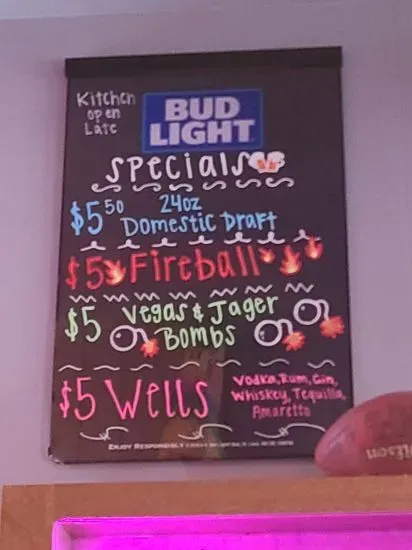 Kitchen
open
Late
BUD
LIGHT
Specials
$5 50 24oz
Domestic Draft
$5 Fireball
$5 Vegas & Jager
Bombs
$5 Wells
Vodka, Rum, Gin,
Whiskey, Tequila,
Amaretto
ENJOY RESPONSIBLY